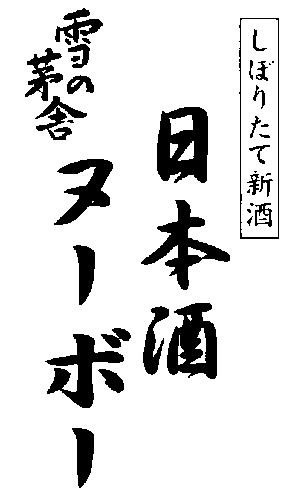 しぼりたて新酒
日本酒
ヌーボー
雪の
茅舎